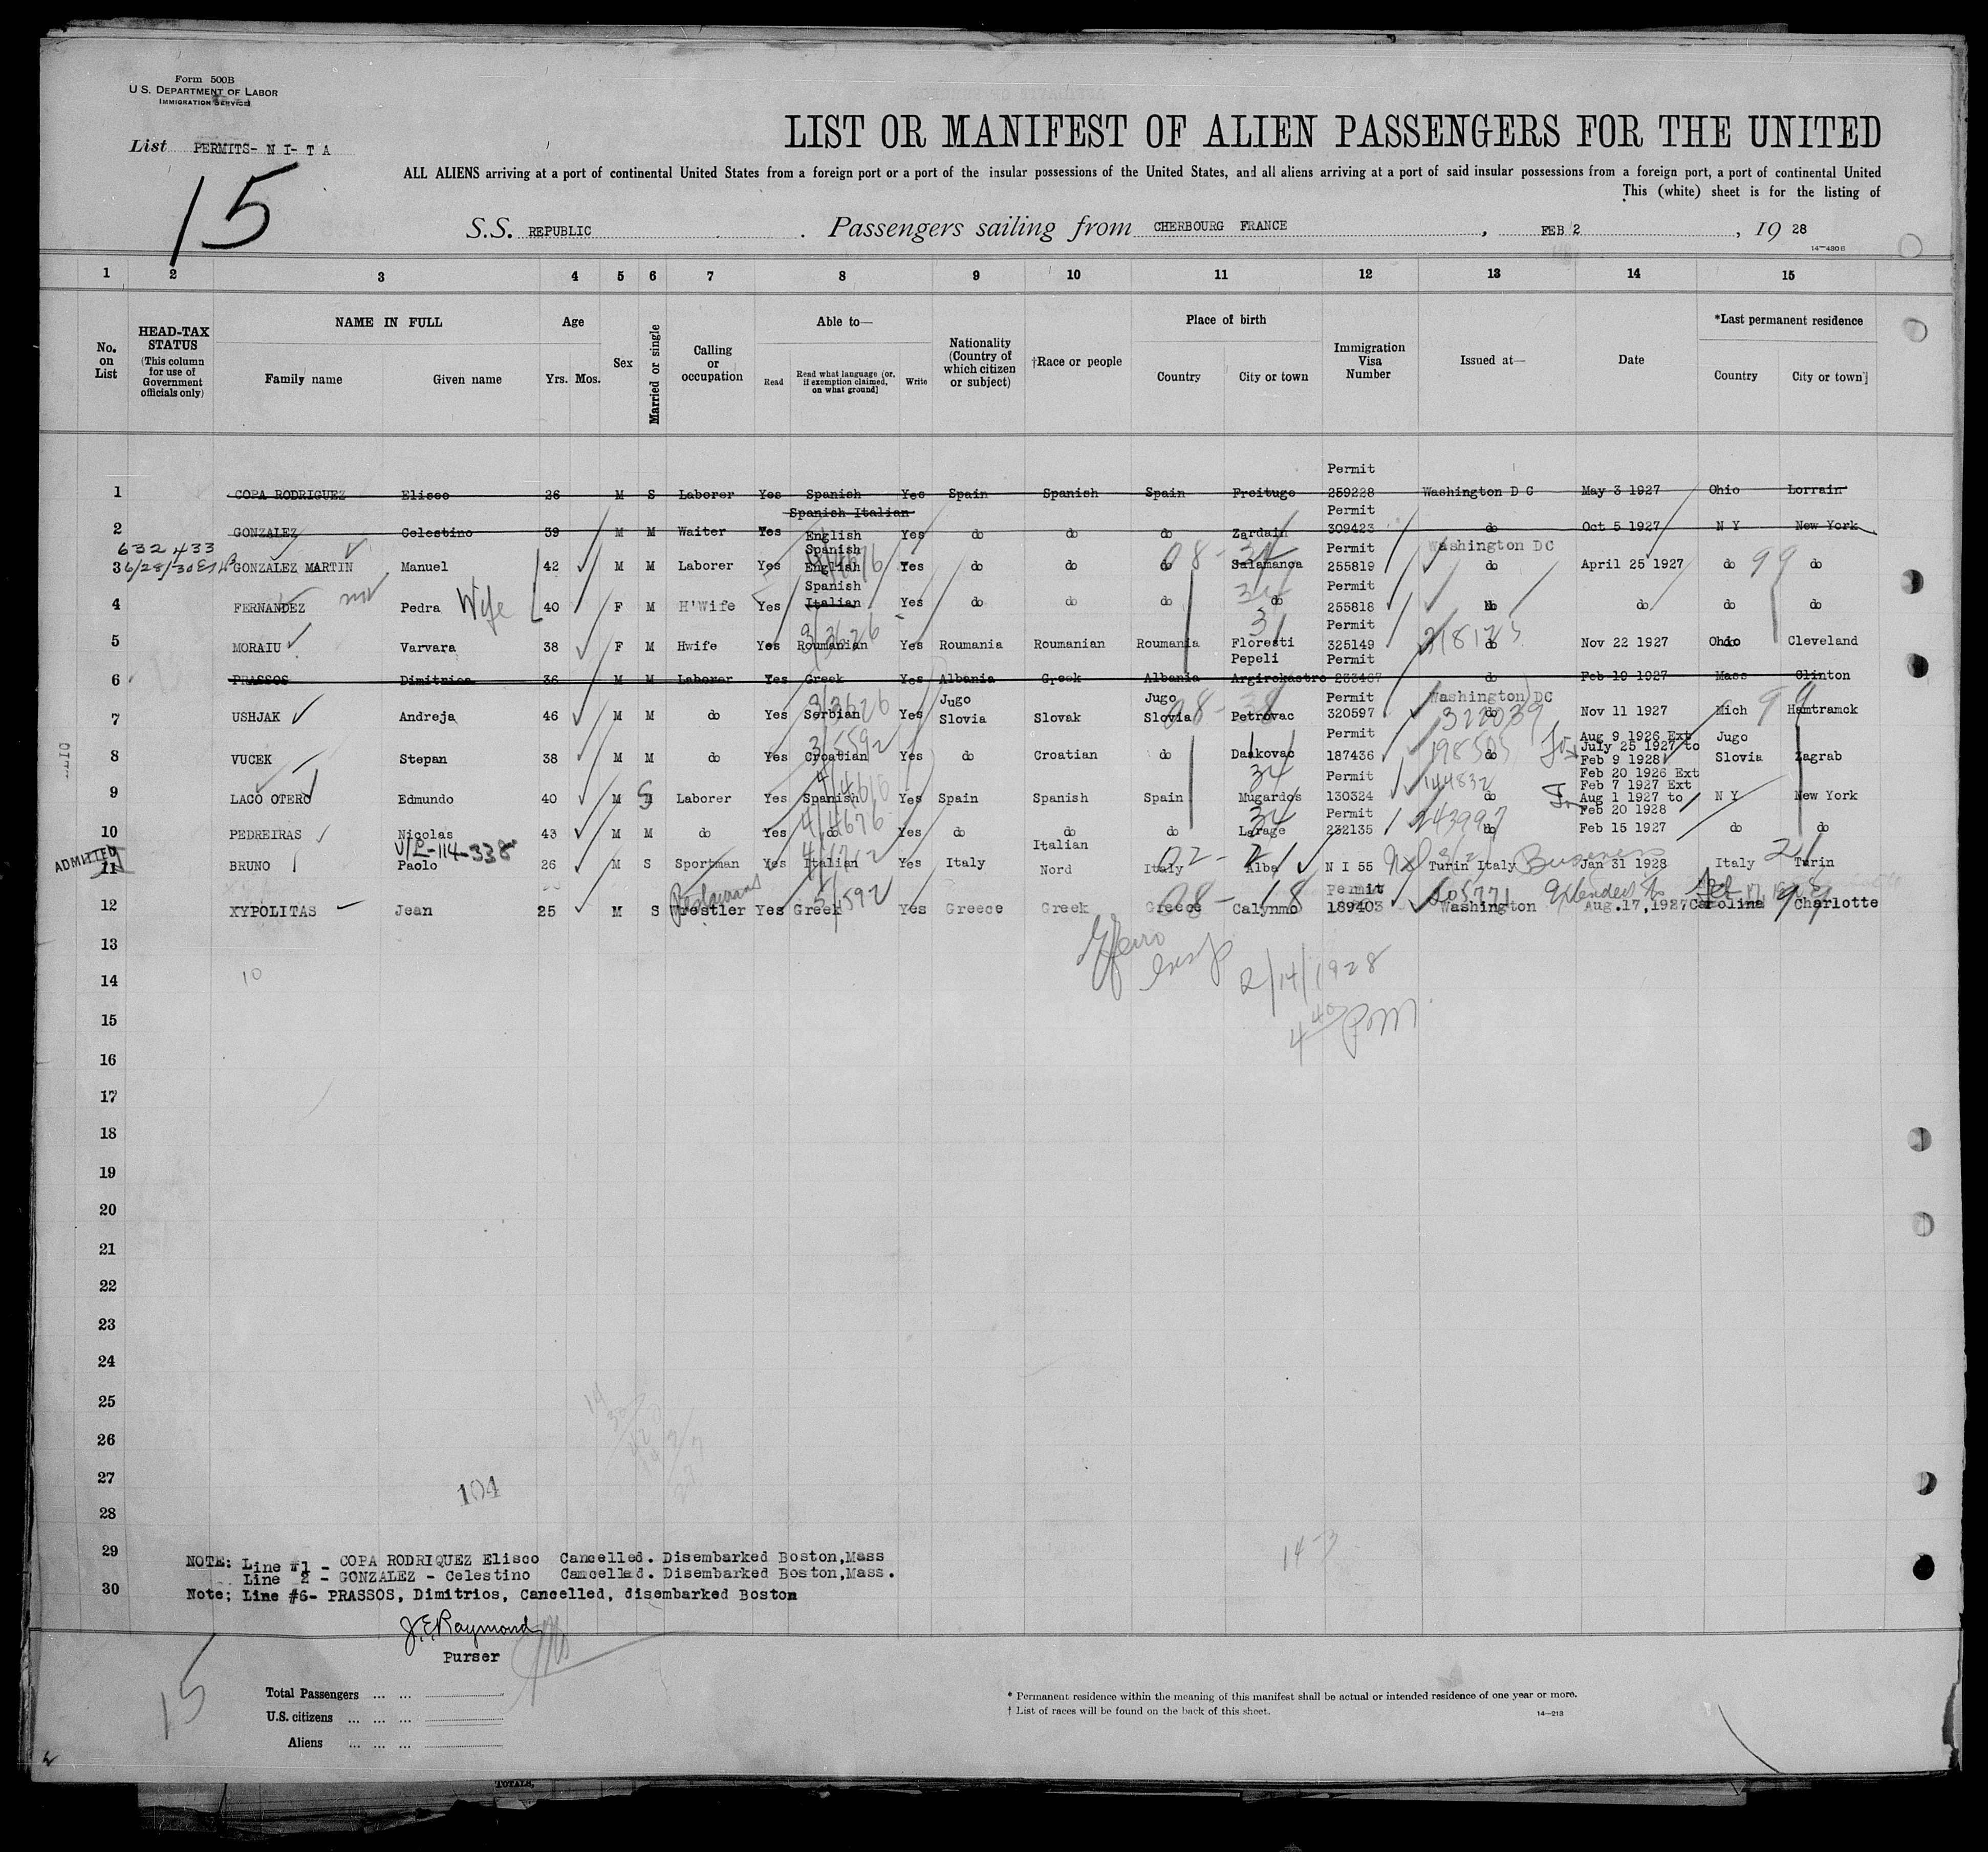 Form 500B
U. S. DEPARTMENT OF LABOR
IMMIGRATION SERVICE
List PERMITS- N I- T A
15
LIST OR MANIFEST OF ALIEN PASSENGERS FOR THE UNITED
ALL ALIENS arriving at a port of continental United States from a foreign port or a port of the insular possessions of the United States, and all aliens arriving at a port of said insular possessions from a foreign port, a port of continental United
This (white) sheet is for the listing of
S.S. REPUBLIC . Passengers sailing from CHERBOURG FRANCE , FEB 2 , 19 28
14—430 B
1 2 3 4 5 6 7 8 9 10 11 12 13 14 15
No. on List
HEAD-TAX STATUS (This column for use of Government officials only)
NAME IN FULL Family name Given name
Age Yrs. Mos.
Sex
Married or single
Calling or occupation
Able to— Read Read what language [or, if exemption claimed, on what ground] Write
Nationality (Country of which citizen or subject)
†Race or people
Place of birth Country City or town
Immigration Visa Number
Issued at—
Date
*Last permanent residence Country City or town]
1 COPA RODRIGUEZ Elisco 26 M S Laborer Yes Spanish Yes Spain Spanish Spain Freituge Permit 259228 Washington D C May 3 1927 Ohio Lorrain
2 GONZALEZ Celestino 39 M M Waiter Yes Spanish Italian English Yes do do do Zardain Permit 309423 do Oct 5 1927 N Y New York
632 433
3 6/28/30 GONZALEZ MARTIN Manuel 42 M M Laborer Yes Spanish English Yes do do do Salamanca Permit 255819 Washington DC do April 25 1927 do 99 do
4 FERNANDEZ Pedra Wife 40 F M H'Wife Yes Spanish Italian Yes do do do do Permit 255818 do do do do
5 MORAIU Varvara 38 F M Hwife Yes Roumanian Yes Roumania Roumanian Roumania Floresti Pepeli Permit 325149 do Nov 22 1927 Ohio Cleveland
6 PRASSOS Dimitrios 36 M M Laborer Yes Greek Yes Albania Greek Albania Argirokastro Permit 233467 Feb 19 1927 Mass Clinton
7 USHJAK Andreja 46 M M do Yes Serbian Yes Jugo Slovia Slovak Jugo Slovia Petrovac Permit 320597 Washington DC 322039 do Nov 11 1927 Mich Hamtramck
8 VUCEK Stepan 38 M M do Yes Croatian Yes do Croatian do Daskovac Permit 187436 do Aug 9 1926 Ext July 25 1927 to Feb 9 1928 Jugo Slovia Zagrab
9 LACO OTERO Edmundo 40 M S Laborer Yes Spanish Yes Spain Spanish Spain Mugardos Permit 130324 144832 do Feb 20 1926 Ext Feb 7 1927 Ext Aug 1 1927 to Feb 20 1928 N Y New York
10 PEDREIRAS Nicolas 43 M M do Yes do Yes do do do Larage Permit 232135 do Feb 15 1927 do do
ADMITTED
11 BRUNO V/L-114-338 Paolo 26 M S Sportman Yes Italian Yes Italy Italian Nord Italy Alba N I 55 Turin Italy Business Jan 31 1928 Italy Turin
12 XYPOLITAS Jean 25 M S Wrestler Yes Greek Yes Greece Greek Greece Calynmo Permit 189403 205771 Washington Extended to Aug.17,1927 Carolina Charlotte
13
14 10
2/14/1928
4 40 PM
15
16
17
18
19
20
21
22
23
24
25
26
27
104
28
29
30
NOTE: Line #1 - COPA RODRIQUEZ Elisco Cancelled. Disembarked Boston,Mass
Line 2 - GONZALEZ - Celestino Cancelled. Disembarked Boston,Mass.
Note; Line #6- PRASSOS, Dimitrios, Cancelled, disembarked Boston
14-3
J.E. Raymond
Purser
15
Total Passengers ... ...
U.S. citizens ... ... ...
Aliens ... ... ...
* Permanent residence within the meaning of this manifest shall be actual or intended residence of one year or more.
† List of races will be found on the back of this sheet.
14—213
TOTALS,